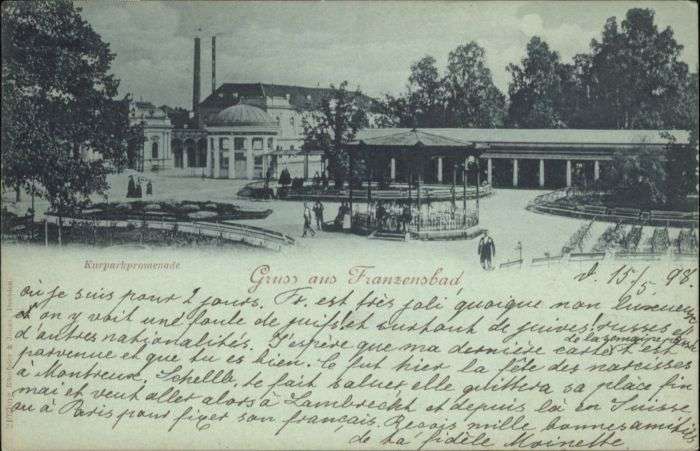 Kurparkpromenade
Gruss aus Franzensbad
d. 15/5 98.
où je suis pour 2 jours. Fr. est très joli quoique non luxueux
et on y voit une foule de juifs et surtout de juives russes et
d'autres nationalités. J'espère que ma dernière carte est
de la semaine
parvenue et que tu es bien. Ce fut hier la fête des narcisses
à Montreux. te fait saluer, elle quittera sa place fin
mai et veut aller alors à Lambrecht et depuis là en Suisse
ou à Paris pour fixer son français. Reçois mille bonnes amitiés
de ta fidèle Moinette.